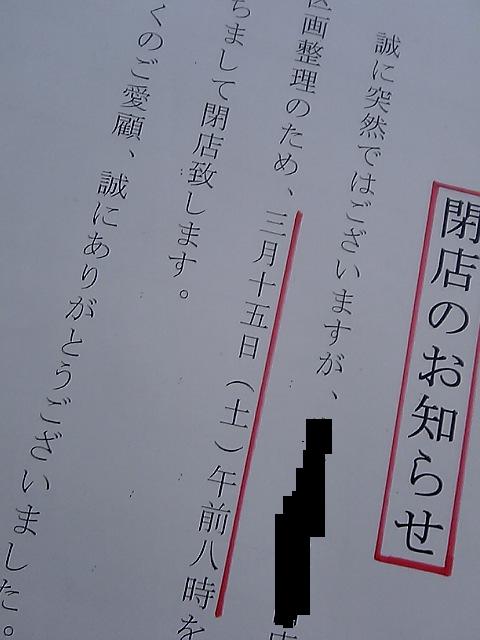 閉店のお知らせ
誠に突然ではございますが、
店
区画整理のため、三月十五日(土)午前八時を
ちまして閉店致します。
くのご愛顧、誠にありがとうございました。